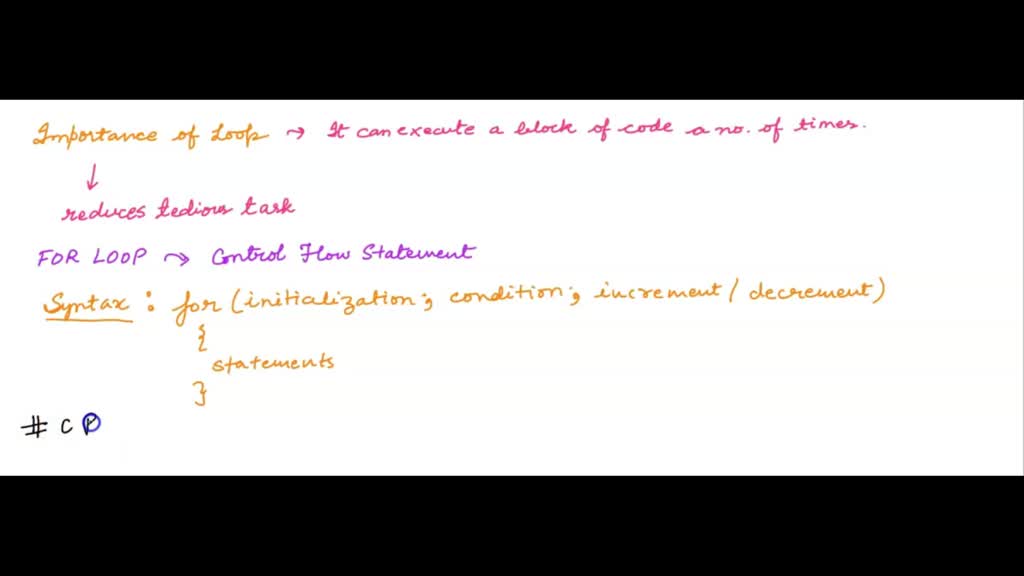 Importance of Loop → It can execute a block of code a no. of times.
↓
reduces tedious task
FOR LOOP → Control Flow Statement
Syntax : for (initialization; condition; increment / decrement)
{
statements
}
# C P